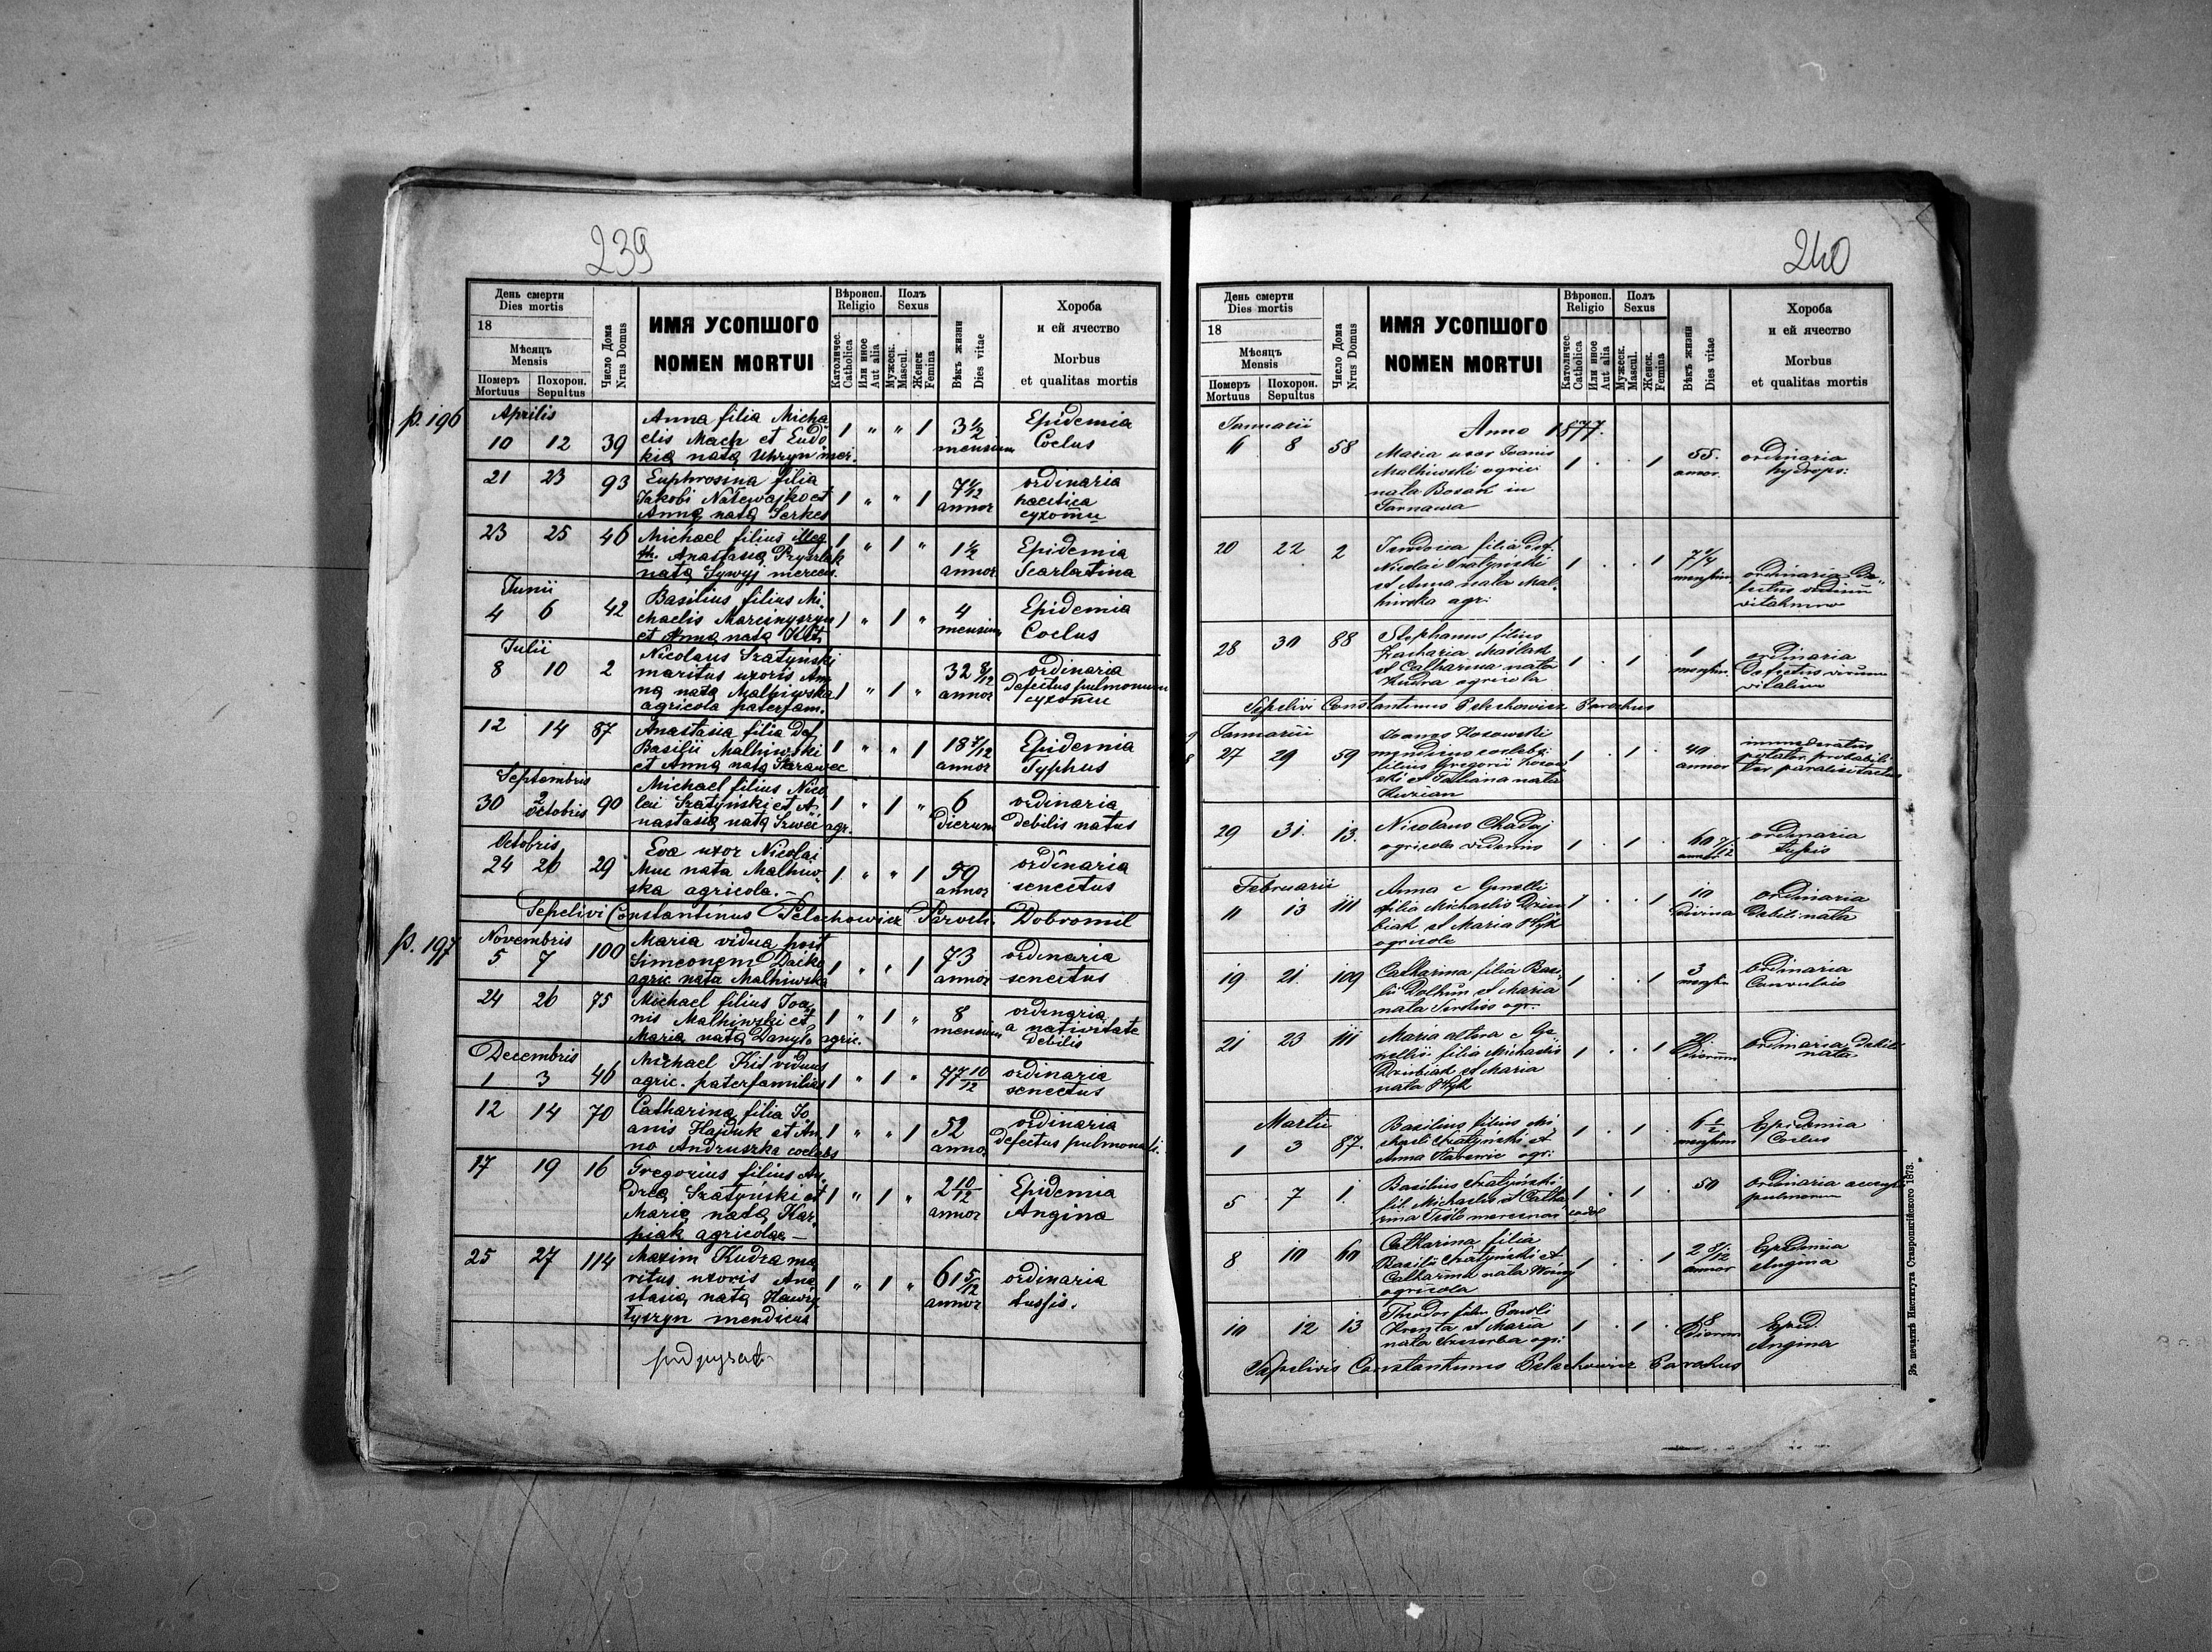 239
День смерти
Dies mortis
18
Мѣсяцъ
Mensis
Померъ Похорон.
Mortuus Sepultus
Число Дома
Nrus Domus
ИМЯ УСОПШОГО
NOMEN MORTUI
Вѣроисп.
Religio
Католичес.
Catholica
Или иное
Aut alia
Полъ
Sexus
Мужеск.
Mascul.
Женск
Femina
Вѣкъ жизни
Dies vitae
Хороба
и ей ячество
Morbus
et qualitas mortis
p. 196
Aprilis
10 12 39
Anna filia Micha
elis Mach et Eudo
kia nata Uhryn mer.
1 " " 1
3 1/2
mensium
Epidemia
Coclus
21 23 93
Euphrosina filia
Jakobi Nalewajko et
Anna nata Serkes
1 " " 1
annor
ordinaria
hectica
сухоты
23 25 46
Michael filius illeg.
th. Anastasia Pryszlak
nata Sywyj mercen.
1 " 1 "
1 1/2
annor
Epidemia
Scarlatina
Junii
4 6 42
Basilius filius Mi
chaelis Marcinyszyn
et Anna nata
1 " 1 "
4
mensium
Epidemia
Coclus
Julii
8 10 2
Nicolaus Szatyński
maritus uxoris An
na nata Malhiwska
agricola paterfam.
1 " 1 "
32 8/12
annor
ordinaria
defectus pulmonum
сухоты
12 14 87
Anastasia filia def
Basilii Malhiwski
et Anna nata Karawec
1 " " 1
18 7/12
annor
Epidemia
Typhus
Septembris
30 2 Octobris 90
Michael filius Nico
lai Szatyński et A
nastasia nata Szweć agr.
1 " 1 "
6
dierum
ordinaria
debilis natus
Octobris
24 26 29
Eva uxor Nicolai
Muc nata Malhiw
ska agricola.
1 " " 1
59
annor
ordinaria
senectus
Sepelivi Constantinus Pelechowicz Paroch. Dobromil
p. 197
Novembris
5 7 100
Maria vidua post
Simeonem Dacko
agric nata Malhiwska
1 " " 1
73
annor
ordinaria
senectus
24 26 75
Michael filius Joa
nis Malhiwski et
Maria nata Danyło agric.
1 " 1 "
8
mensium
ordinaria
a nativitate
debilis
Decembris
1 3 46
Michael Kit viduus
agric. paterfamilias
1 " 1 "
77 10/12
ordinaria
senectus
12 14 70
Catharina filia Jo
anis Hajduk et An
na Andruszka coelebs
1 " " 1
52
annor
ordinaria
defectus pulmonali.
17 19 16
Gregorius filius An
drea Szatyński et
Maria nata Kar
piak agricolae
1 " 1 "
2 10/12
annor
Epidemia
Angina
25 27 114
Maxim Kudra ma
ritus uxoris Ana
stasia nata Hawry
łyszyn mendicus
1 " 1 "
61 5/12
annor
ordinaria
tussis.
240
День смерти
Dies mortis
18
Мѣсяцъ
Mensis
Померъ Похорон.
Mortuus Sepultus
Число Дома
Nrus Domus
ИМЯ УСОПШОГО
NOMEN MORTUI
Вѣроисп.
Religio
Католичес.
Catholica
Или иное
Aut alia
Полъ
Sexus
Мужеск.
Mascul.
Женск.
Femina
Вѣкъ жизни
Dies vitae
Хороба
и ей ячество
Morbus
et qualitas mortis
Anno 1877.
Januarii
6 8 58
Maria uxor Joanis
Malhiwski agric
nata Bosak in
Tarnawa
1 . . 1
55.
annor.
ordinaria
hydrops:
20 22 2
filia def.
Nicolai Szatyński
et Anna nata Mal
hiwska agr:
1 . . 1
mensium
ordinaria De
fectus virium
vitalium
28 30 88
Stephanus filius
Zacharia Maślak
et Catharina nata
Kudra agricola
1 . 1 .
1
mensium
ordinaria
Defectus virium
vitalium
Sepelivi Constantinus Pelechowicz Parochus
Januarii
27 29 59
Joanes Kosowski
mendicus coelebs
filius Gregorii Kosow
ski et Tatiana nata
1 . 1 .
40
annor
immoderatus
potator probabili
ter paralisi tactus
29 31. 13.
Nicolaus Chaduj
agricola viduus
1 . 1 .
60 7/12
annor
ordinaria
tussis
Februarii
11 13 111
Anna e Gemelli
filia Michaelis Dziu
biak et Maria Hyk
agricole
1 . . 1
10
ordinaria
debili nata
19 21. 109
Catharina filia Basi
lii et Maria
nata agr:
1 . . 1
3
mensium
ordinaria
Convulsio
21 23 111
Maria altera e Ge
mellis filia Michaelis
Dziubiak et Maria
nata Hyk
1 . . 1
20
dierum
ordinaria debili
nata
Martii
1 3 87.
Basilius filius Mi
chaeli Szatyński et
Anna Karawec agr:
1 . 1 .
6 1/2
mensium
Epidemia
Coclus
5 7 1.
Basilius Szatyński
fil. Michaelis et Catha
rina mercenar coel
1 . 1 .
50
ordinaria
pulmonum
8 10 60
Catharina filia
Basilii Szatyński et
Catharina nata
agricola
1 . . 1
2 8/12
annor
Epidemia
Angina
10 12 13
Theodor filius Pauli
et Maria
nata Szczerba agr:
1 . 1 .
18
dierum
Epid.
Angina
Sepelivis Constantinus Pelechowicz Parochus
Въ печатнѣ Института Ставропигійского 1873.